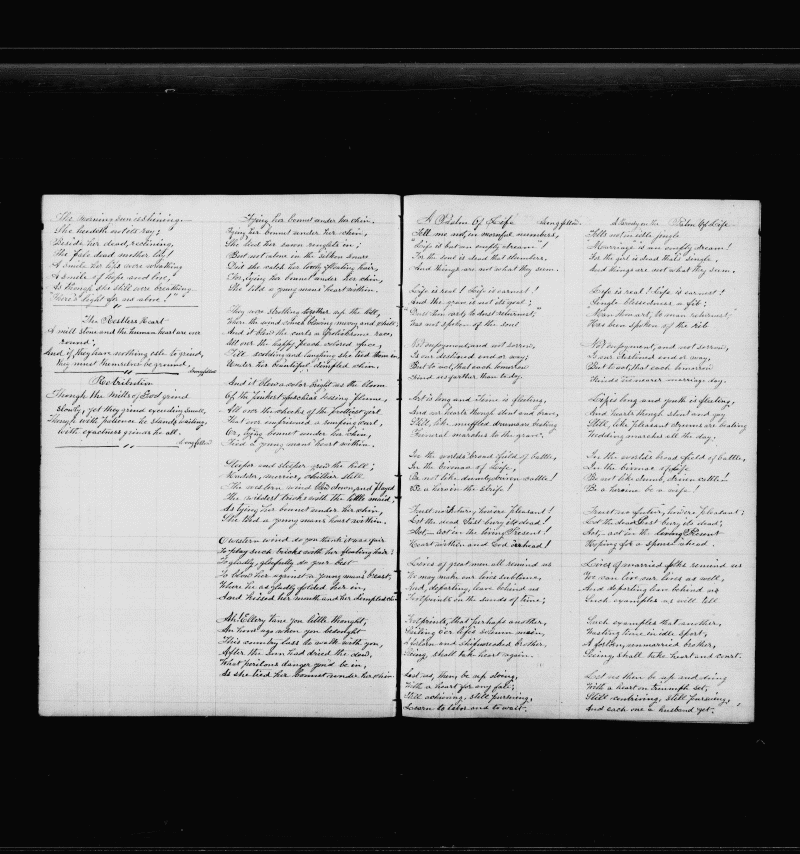 The morning sun is shining.
She heedeth not its ray;
Beside her dead, reclining,
The pale dead mother lay!
A smile her lips were wreathing
A smile of hope and love,
As though she still were breathing
"There's light for us above!"
The Restless Heart
A mill stone and the human heart are ever
round;
And, if they have nothing else to grind,
They must themselves be ground. Longfellow
Retribution
Though the mills of God grind
slowly, yet they grind exceeding small,
Though with patience he stands waiting,
with exactness grinds he all.
Longfellow
Tying her bonnet under her chin.
Tying her bonnet under her chin,
She tied her raven ringlets in;
But not alone in the silken snare
Did she catch her lovely floating hair,
For, tying her bonnet under her chin,
She tied a young man's heart within.
They were strolling together up the hill,
Where the wind comes blowing merry and chill;
And it blew the curls a frolicksome race,
All over the happy peach colored face,
Till scolding and laughing she tied them in,
Under her beautiful dimpled chin.
And it blew a color bright as the bloom
Of the pinkest fuchsias tossing plume,
All over the cheeks of the prettiest girl
That ever imprisoned a romping curl,
Or, tying her bonnet under her chin,
Tied a young man's heart within.
Steeper and steeper grew the hill;
Madder, merrier, chillier still
The western wind blew down, and played
The wildest tricks with the little maid
As tying her bonnet under her chin,
She tied a young man's heart within.
O western wind do you think it was fair
To play such tricks with her floating hair?
To gladly, gleefully do your best
To blow her against a young man's breast,
Where he as gladly folded her in,
And kissed her mouth and her dimpled chin
Ah! Ellery Vane you little thought,
An hour ago when you besought
This country lass to walk with you,
After the sun had dried the dew,
What perilous danger you'd be in,
As she tied her bonnet under her chin.
A Psalm Of Life Longfellow.
Tell me not, in mournful numbers,
"Life is but an empty dream"!
For the soul is dead that slumbers,
And things are not what they seem.
Life is real! Life is earnest!
And the grave is not its goal;
"Dust thou art, to dust returnest,"
Was not spoken of the soul
Not enjoyment, and not sorrow,
Is our destined end or way;
But to act, that each tomorrow
Find us farther than to-day.
Art is long and Time is fleeting,
And our hearts though stout and brave,
Still, like muffled drums are beating
Funeral marches to the grave.
In the world's broad field of battle,
In the bivouac of Life,
Be not like dumb, driven cattle!
Be a hero in the strife!
Trust no Future, howe'er pleasant!
Let the dead Past bury its dead!
Act,— act in the living Present!
Heart within and God o'erhead!
Lives of great men all remind us
We may make our lives sublime,
And, departing, leave behind us
Footprints on the sands of time;
Footprints, that perhaps another,
Sailing o'er life's solemn main,
A forlorn and shipwrecked brother,
Seeing, shall take heart again.
Let us, then, be up and doing,
With a heart for any fate;
Still achieving, still pursuing,
Learn to labor and to wait.
A Parody on the Psalm Of Life
Tell us not in idle jingle
"Marriage" is an empty dream!
For the girl is dead that's single,
And things are not what they seem.
Life is real! Life is earnest!
Single blessedness a fib;
"Man thou art, to man returnest"
Has been spoken of the rib
Not enjoyment, and not sorrow,
Is our destined end or way,
But to act, that each tomorrow
Finds us nearer marriage day.
Life is long and youth is fleeting,
And hearts though stout and gay
Still, like pleasant drums are beating
Wedding marches all the day.
In the world's broad field of battle,
In the bivouac of life
Be not like dumb, driven cattle!
Be a heroine be a wife!
Trust no future, howe'er pleasant;
Let the dead Past bury its dead;
Act,— act in the living Present
Hoping for a spouse ahead.
Lives of married folks remind us
We can live our lives as well,
And departing leave behind us
Such examples as will tell
Such examples that another,
Wasting time in idle sport,
A forlorn, unmarried brother,
Seeing, shall take heart and court.
Let us then be up and doing
With a heart on triumph set,
Still contriving, still pursuing,
And each one a husband get.